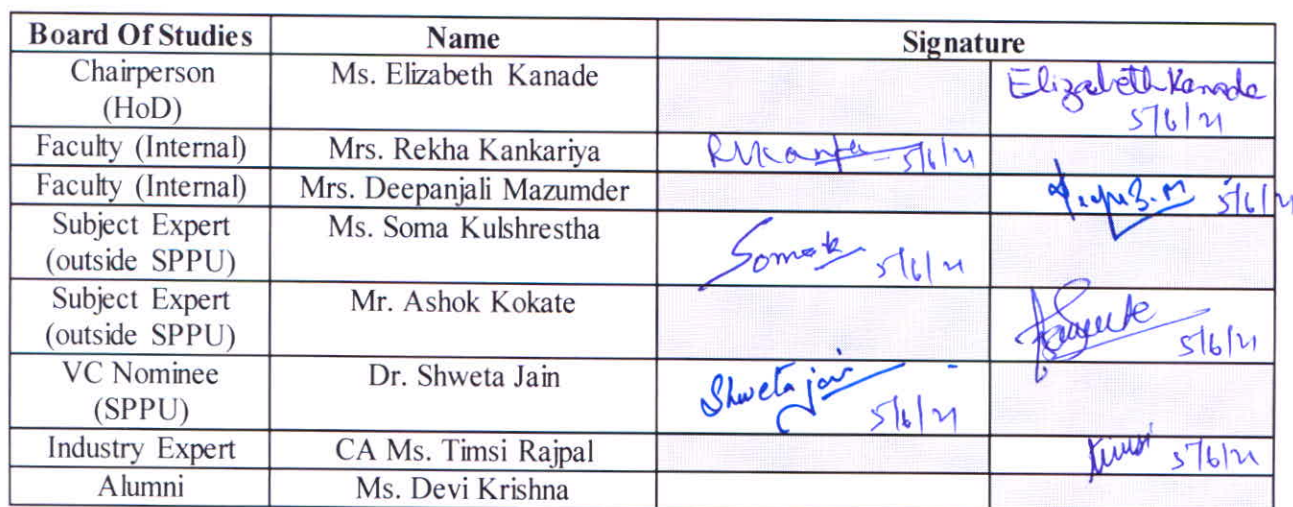 Board Of Studies Name Signature
Chairperson Ms. Elizabeth Kanade Elizabeth Kanade
(HoD) 5/6/21
Faculty (Internal) Mrs. Rekha Kankariya 5/6/21
Faculty (Internal) Mrs. Deepanjali Mazumder 5/6/21
Subject Expert Ms. Soma Kulshrestha
(outside SPPU) 5/6/21
Subject Expert Mr. Ashok Kokate
(outside SPPU) 5/6/21
VC Nominee Dr. Shweta Jain Shweta jain
(SPPU) 5/6/21
Industry Expert CA Ms. Timsi Rajpal Timsi 5/6/21
Alumni Ms. Devi Krishna